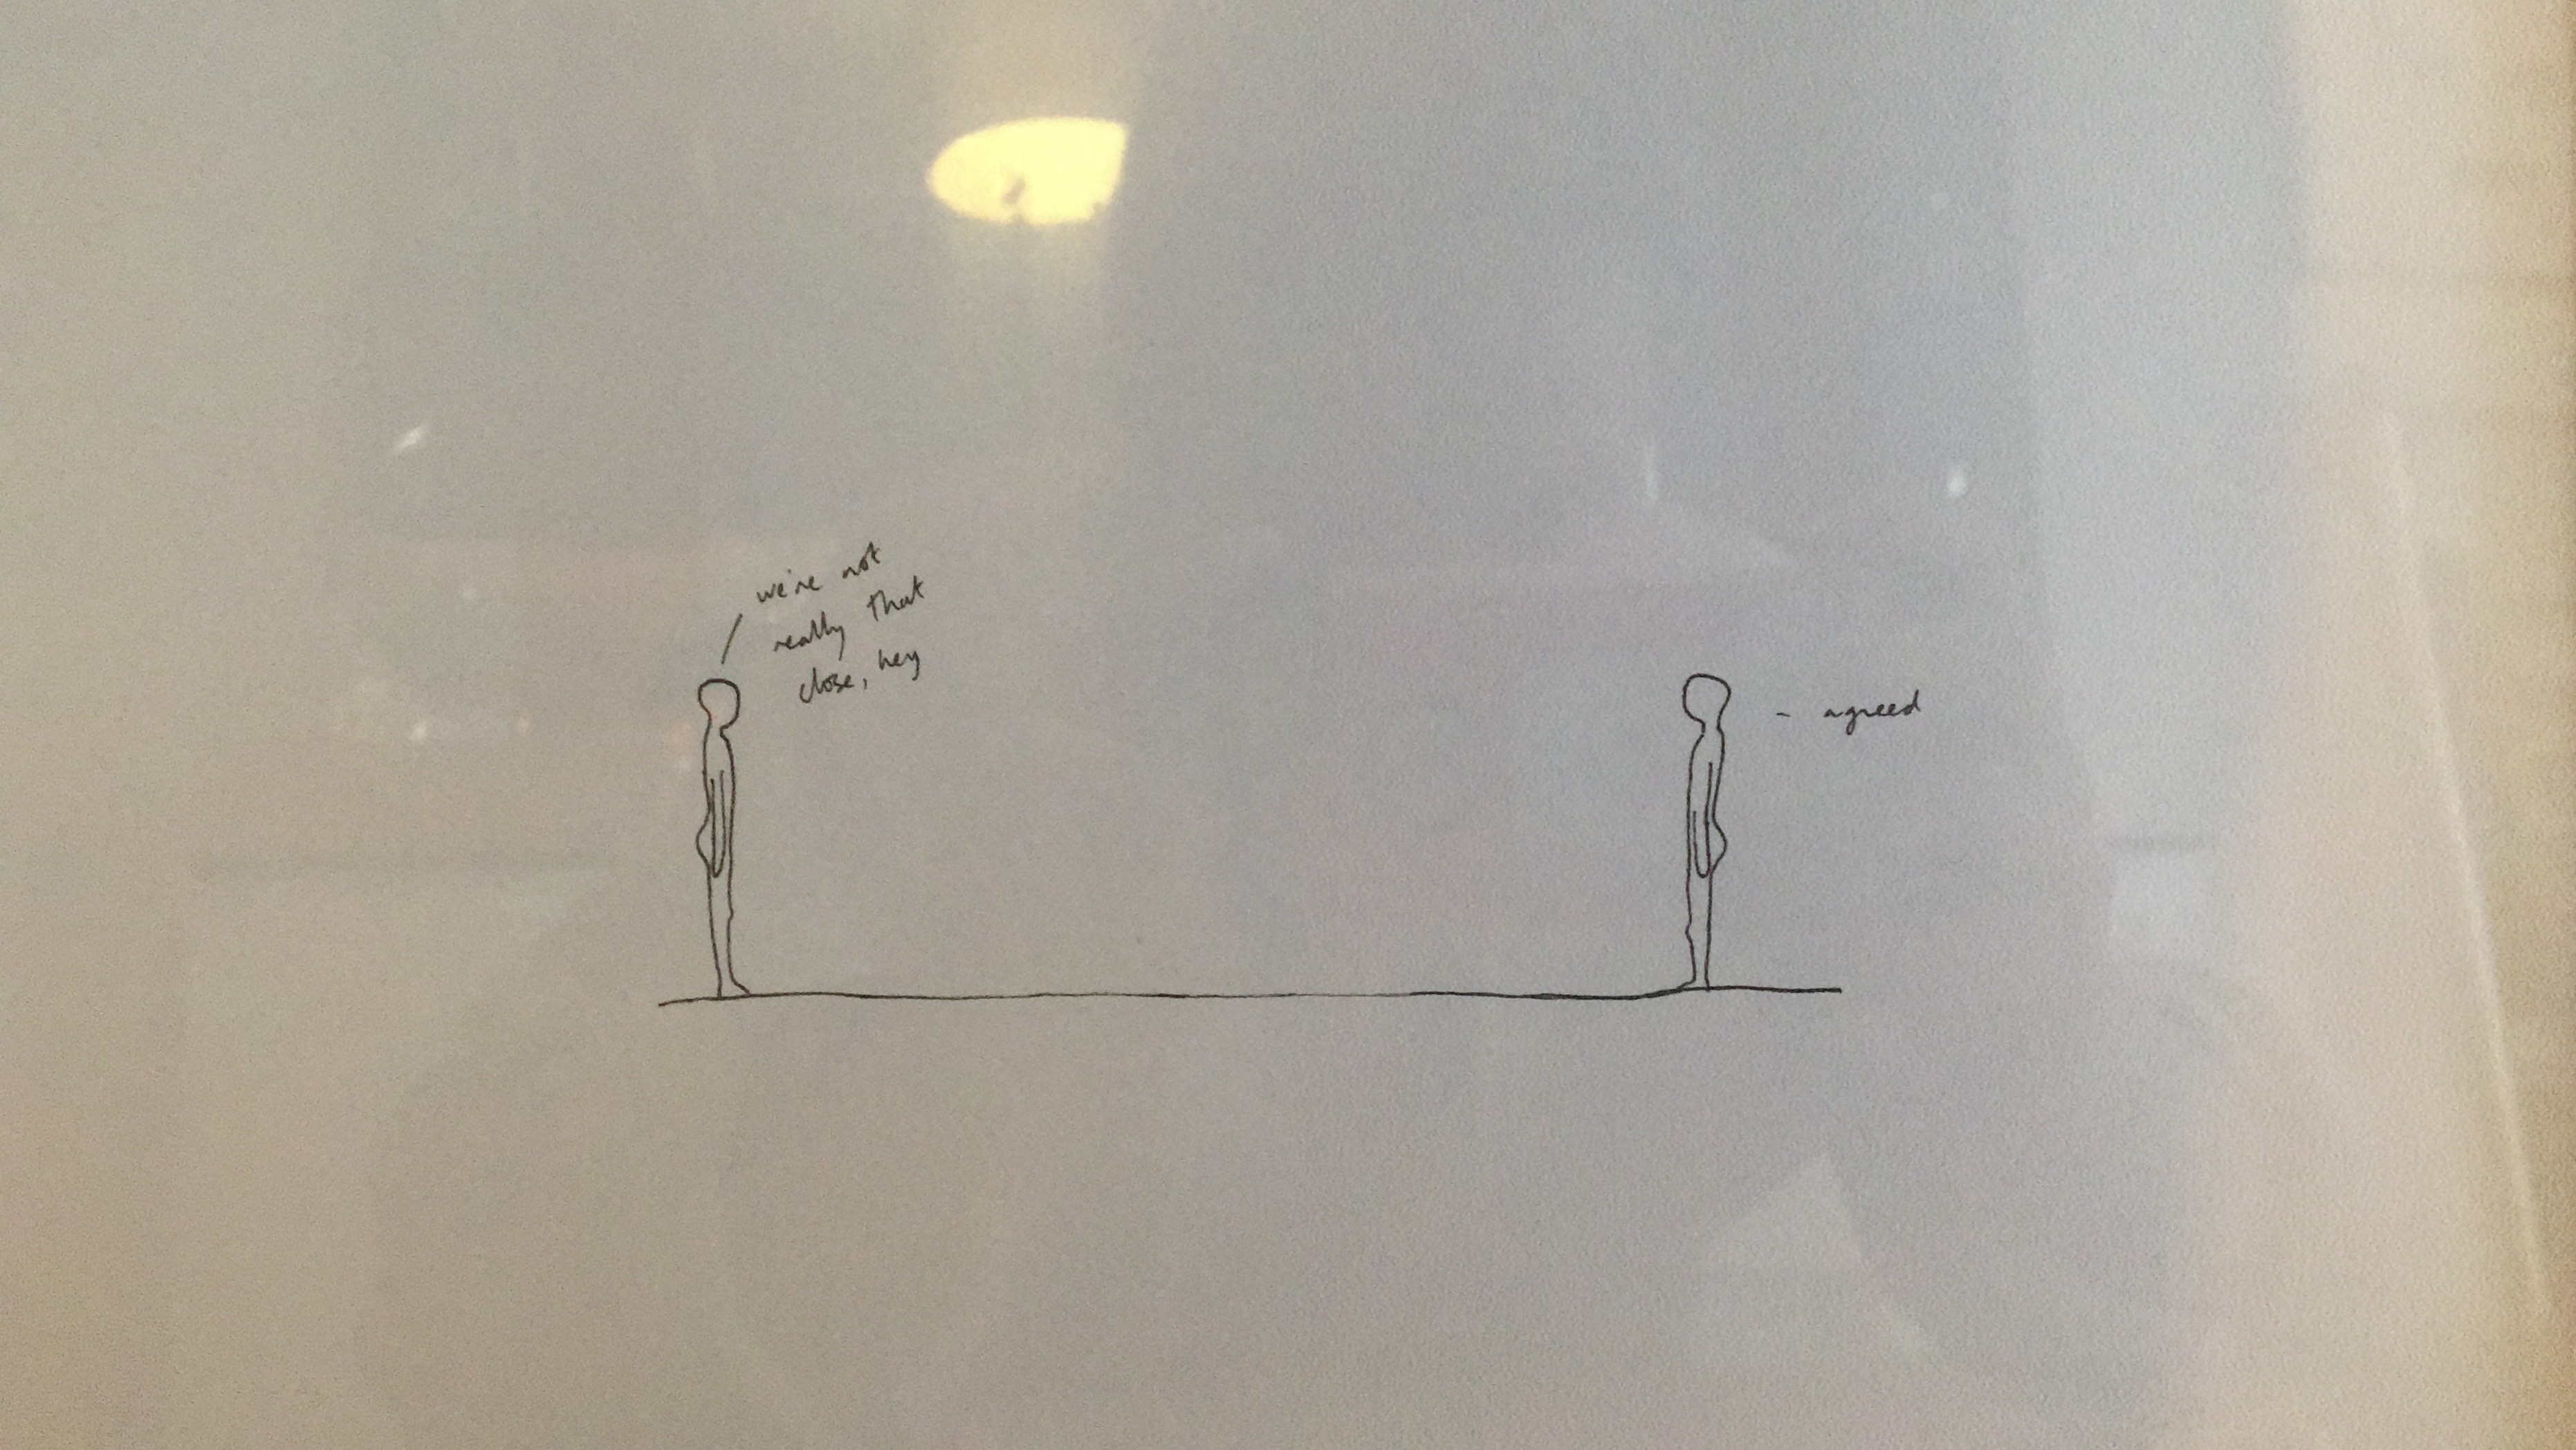 we're not
really that
close, hey
- agreed